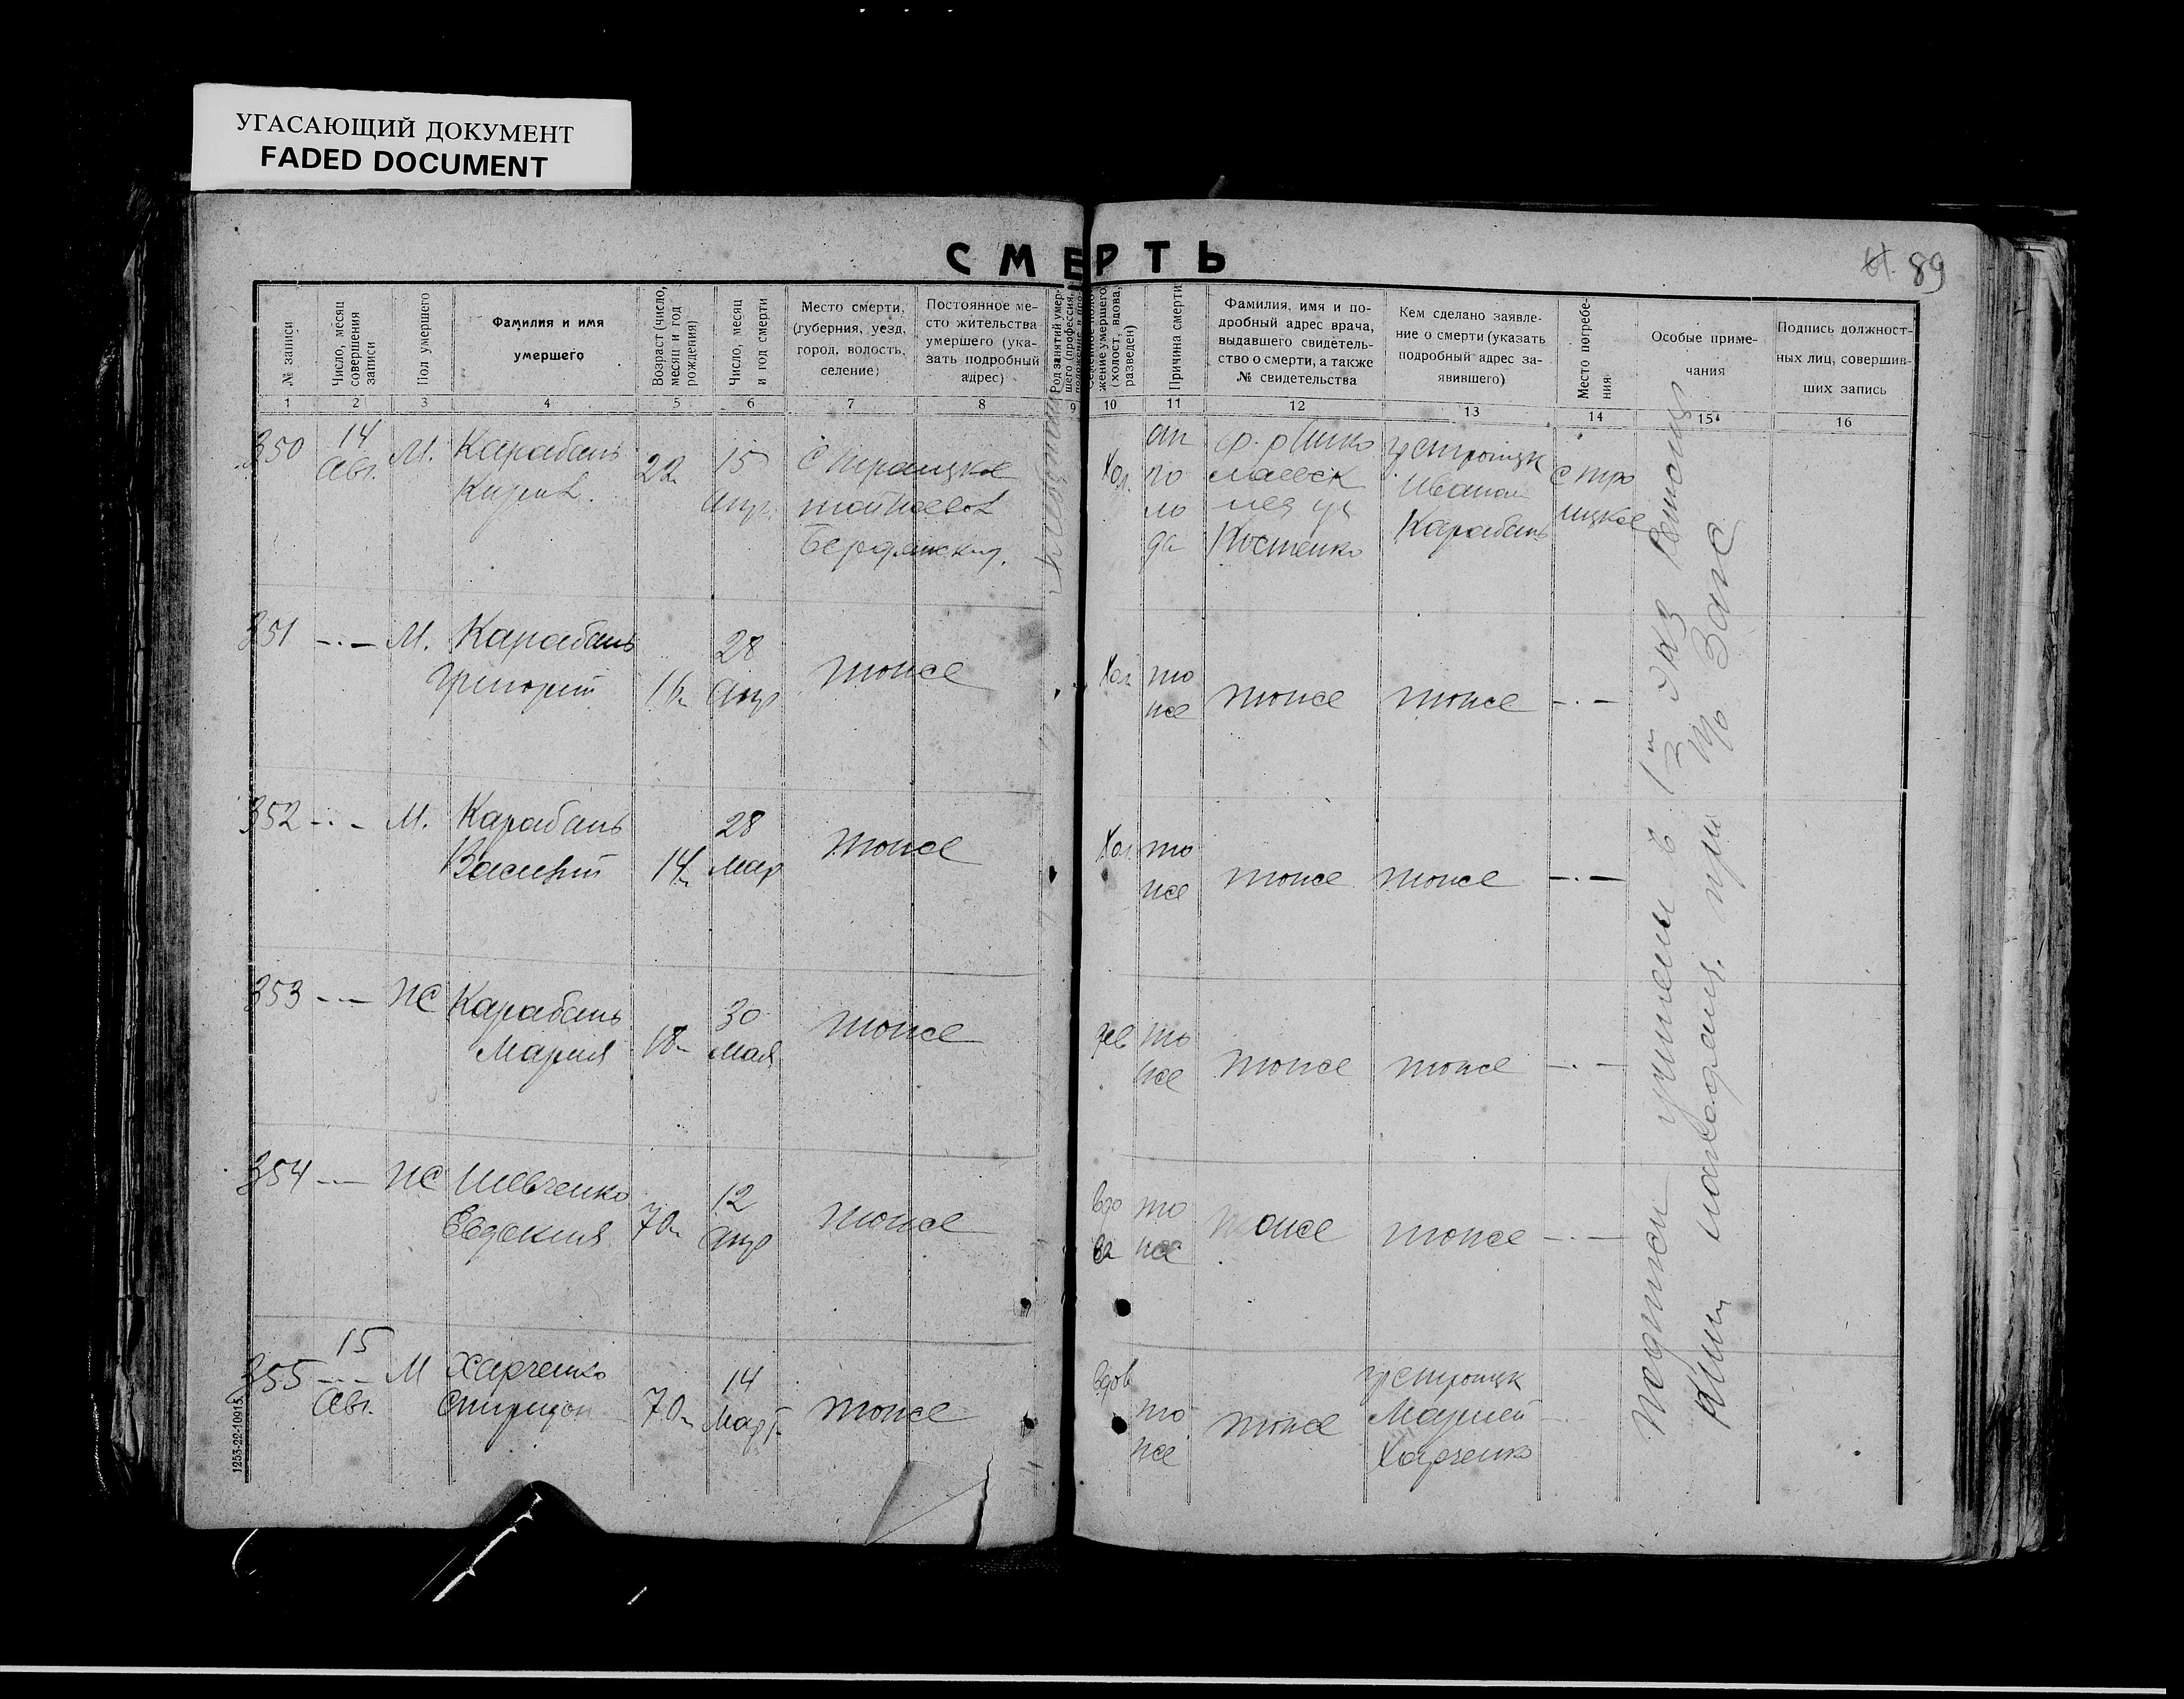 УГАСАЮЩИЙ ДОКУМЕНТ
FADED DOCUMENT
СМЕРТЬ
89
№ записи
Число, месяц совершения записи
Пол умершего
Фамилия и имя
умершего
Возраст (число, месяц и год рождения)
Число, месяц и год смерти
Место смерти,
(губерния, уезд,
город, волость,
селение)
Постоянное ме-
сто жительства
умершего (ука-
зать подробный
адрес)
Род занятий умер-
шего (профессия,
жение умершего
(холост, вдова,
разведен)
Причина смерти
Фамилия, имя и по-
дробный адрес врача,
выдавшего свидетель-
ство о смерти, а также
№ свидетельства
Кем сделано заявле-
ние о смерти (указать
подробный адрес за-
явившего)
Место погребе-
ния
Особые приме-
чания
Подпись должност-
ных лиц, совершив-
ших запись
1 2 3 4 5 6 7 8 9 10 11 12 13 14 15 16
350 14 Авг. М. Карабань
22 15 Апр. с Троицкое
Бердянск
Хол. го ло да
Костенко
гр с троицк
Иваном
Карабань
с тро
ицкое
351 -·- М. Карабань
Григорий 16 28 Апр тоже
Хол то же тоже тоже -·-
352 -·- М. Карабань
Василий 14 28 Мар тоже
Хол. то же тоже тоже -·-
353 -·- Ж Карабань
Мария 18 30 Мая тоже
дев то же тоже тоже -·-
354 -·- Ж Шевченко
Евдокия 70 12 Апр тоже
вдо ва то же тоже тоже -·-
355 15 Авг. М Харченко
Спиридон 70 14 Март. тоже
вдов то же тоже
гр с троицк
Марией
Харченко
Подписи учинены в 1м экз
при ЗАГС
1253-22-10915.